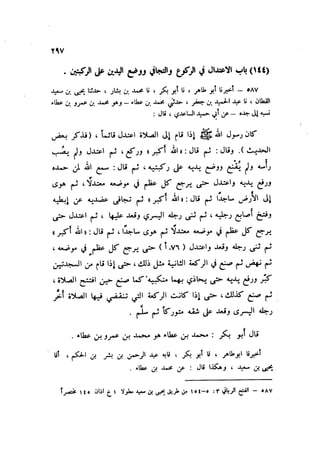 ٢٩٧
(١٤٤) باب الاعتدال في الركوع والتجافي ووضع اليدين على الركبتين .
٥٨٧ – أخبرنا أبو طاهر ، نا أبو بكر ، نا محمد بن بشار ، حدثنا يحيى بن سعيد
القطان ، نا عبد الحميد بن جعفر ، حدثني محمد بن عطاء – وهو محمد بن عمرو بن عطاء
نسبه إلى جده – عن أبي حميد الساعدي ، قال :
كان رسول الله ﷺ إذا قام إلى الصلاة اعتدل قائماً ، (فذكر بعض
الحديث). وقال : ثم قال : «الله أكبر» ، وركع ، ثم اعتدل ولم يصب
رأسه ولم يقنع ووضع يديه على ركبتيه ، ثم قال : سمع الله لمن حمده
ورفع يديه واعتدل حتى يرجع كل عظم في موضعه معتدلاً ، ثم هوى
إلى الأرض ساجداً ثم قال : «الله أكبر» ثم تجافى عضديه عن إبطيه
وفتح أصابع رجليه ، ثم ثنى رجله اليسرى وقعد عليها ، ثم اعتدل حتى
يرجع كل عظم في موضعه معتدلاً ثم هوى ساجداً ، ثم قال : «الله أكبر»
ثم ثنى رجله وقعد واعتدل (٧٦ أ) حتى يرجع كل عظم في موضعه ،
ثم نهض ثم صنع في الركعة الثانية مثل ذلك ، حتى إذا قام من السجدتين
كبّر ورفع يديه حتى يحاذي بهما منكبيه كما صنع حين افتتح الصلاة ،
ثم صنع كذلك ، حتى إذا كانت الركعة التي تنقضي فيها الصلاة أخّر
رجله اليسرى وقعد على شقه متوركاً ثم سلم .
قال أبو بكر : محمد بن عطاء هو محمد بن عمرو بن عطاء .
أخبرنا ابوطاهر ، نا ابو بكر ، نا عبد الرحمن بن بشر بن الحكم ،
يحيى بن سعيد ، وهكذا قال : عن محمد بن عطاء .
٥٨٧ – الفتح الرباني ٣ : ٥–١٥٤ من طريق يحيى بن سعيد مطولاً ؛ خ اذان ١٤٥ مختصراً